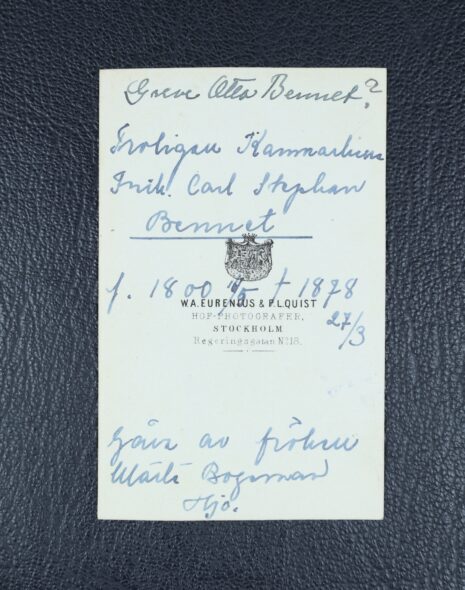 Greve Otto Bennet?
Troligen Kammarherre
Frih. Carl Stephan
Bennet
f. 1800 † 1878
27/3
W.A. EURENIUS & P.L. QUIST
HOF-PHOTOGRAFER,
STOCKHOLM
Regeringsgatan No 18.
Gåva av fröken
Märta
Hjo.